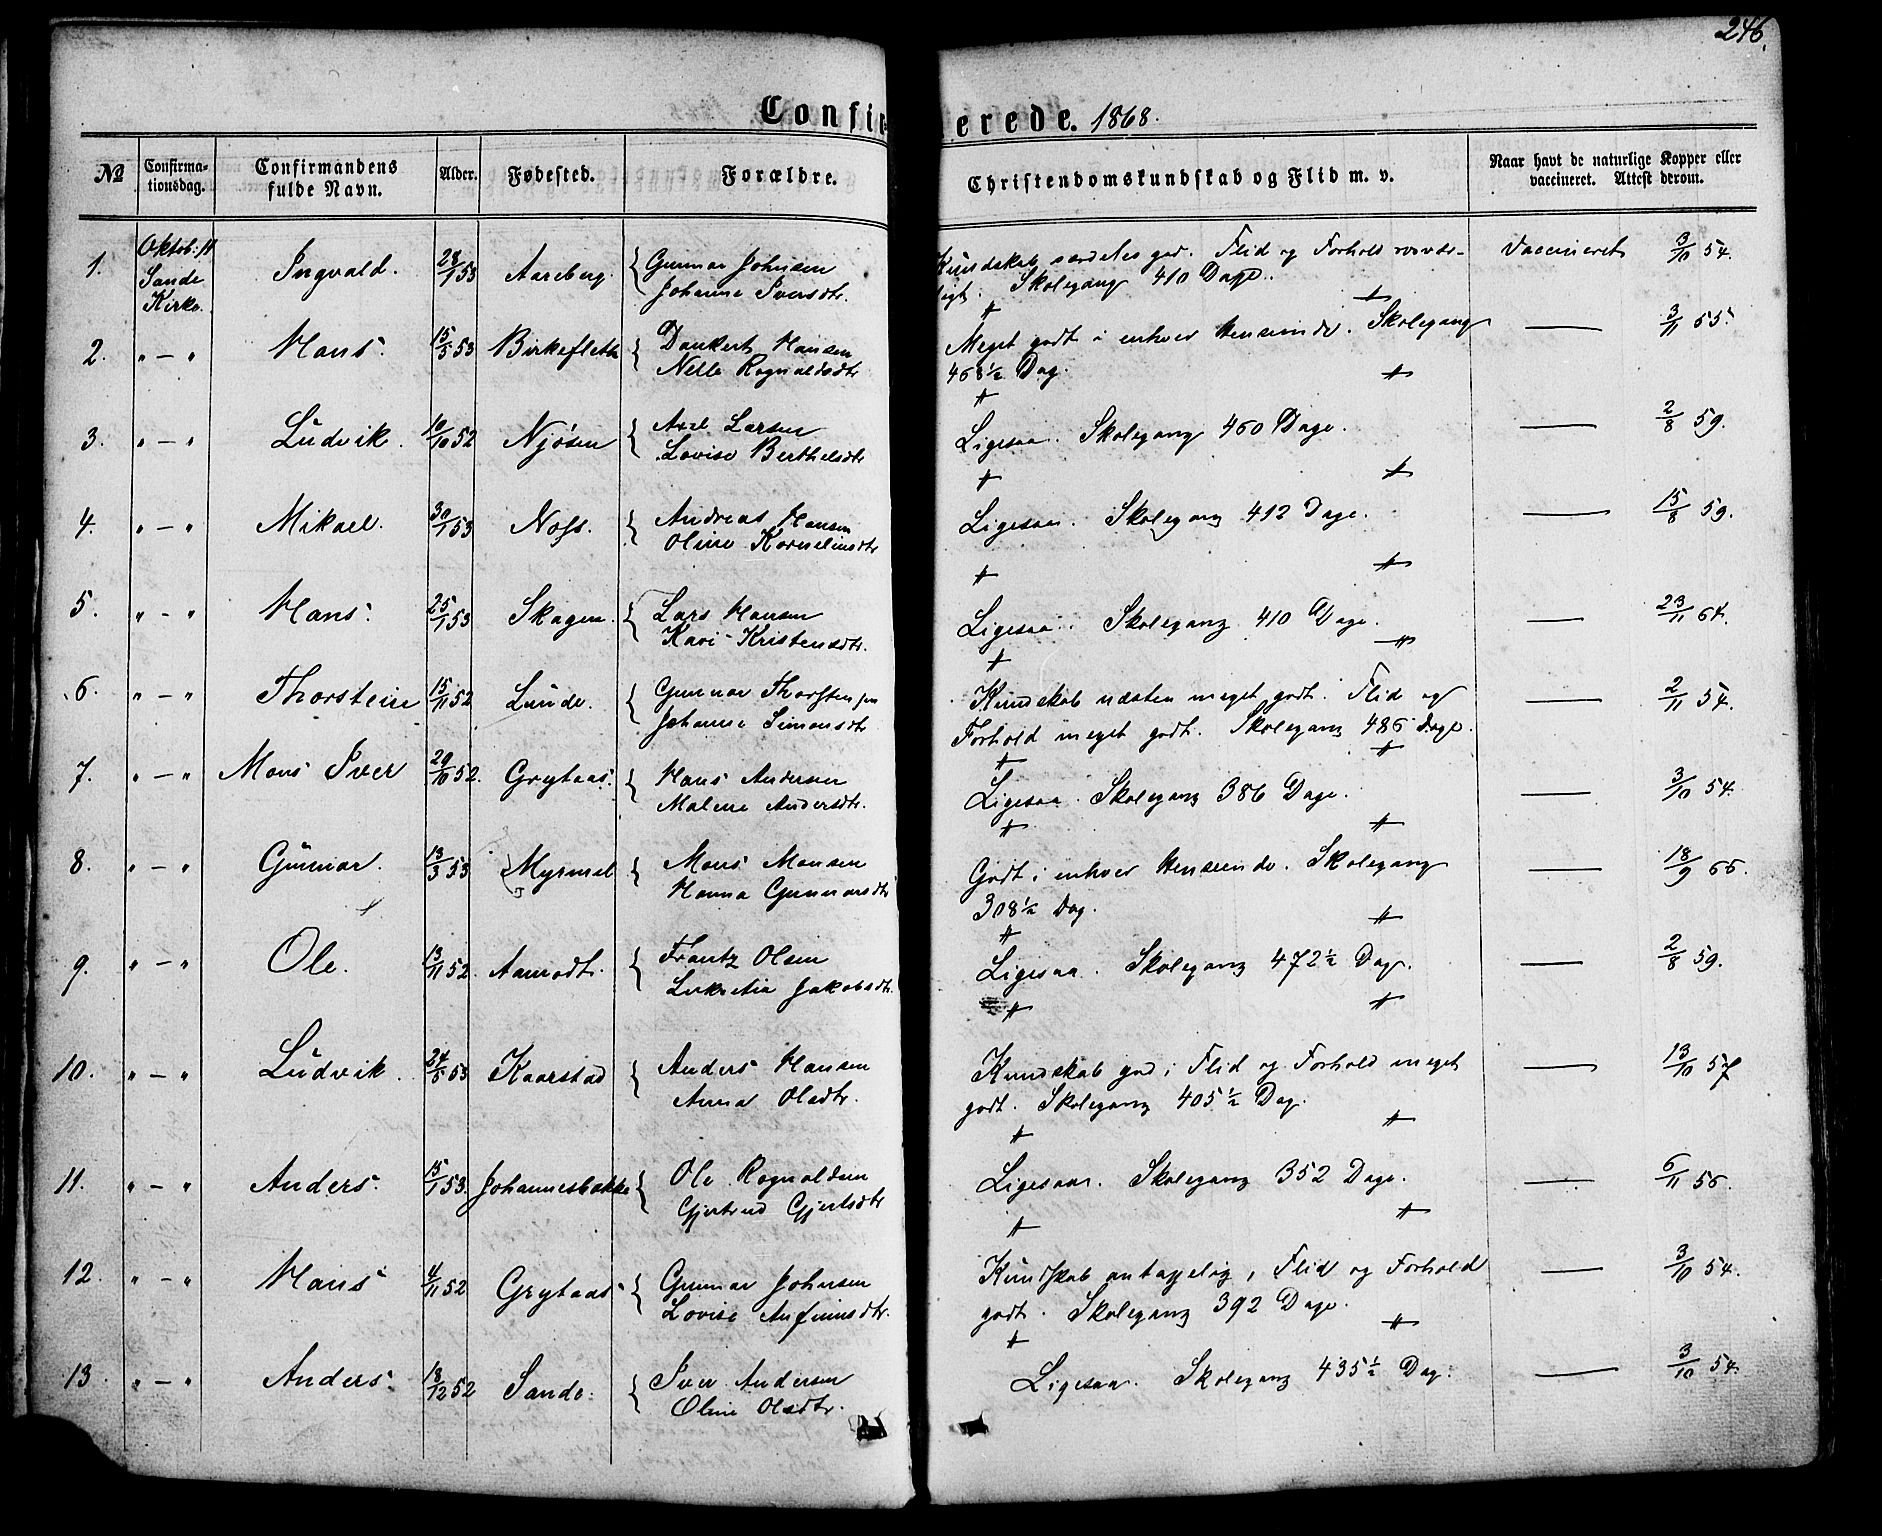 246.
Confir erede. 1868.
№ Confirma-tionsdag. Confirmandens fulde Navn. Alder. Fødested. Forældre. Christendomskundskab og Flid m. v. Naar havt de naturlige Kopper eller vaccineret. Attest derom.
1. Oktob: 11 Sande Kirke. Ingvald. 28/1 53 Aareberg. Gunnar Johnsen
Johanne Iversdtr.
Kundskab særdeles god. Flid og Forhold
ligt. Skolegang 410 Dage. Vaccineret 3/10 54.
2. " – " Hans. 15/5 53 Birkefleth Dankert Hansen
Nelle Rognaldsdtr
Meget godt i enhver Henseende. Skolegang
468½ Dag. — 3/11 55.
3. " – " Ludvik. 10/10 52 Njøsen Axel Larsen
Lovise Berthelsdtr
Ligesaa. Skolegang 460 Dage. — 2/8 59.
4. " – " Mikael. 30/1 53 Noss. Andreas Hansen
Oline Korneliusdtr
Ligesaa. Skolegang 412 Dage. — 15/8 59.
5. " – " Hans. 25/1 53 Skagen. Lars Hansen
Kari Kristensdtr.
Ligesaa. Skolegang 410 Dage. — 23/11 64.
6. " – " Thorstein 15/11 52 Lunde. Gunnar Thorstensen
Johanne Simonsdtr
Kundskab næsten meget godt. Flid og
Forhold meget godt. Skolegang 486 Dage. — 2/11 54.
7. " – " Mons Iver 29/10 52. Grytaas. Hans Andersen
Malene Andersdtr.
Ligesaa. Skolegang 386 Dage. — 3/10 54.
8. " – " Gunnar. 13/3 53 Myrmel Mons Monsen
Hanna Gunnarsdtr
Godt i enhver Henseende. Skolegang
308½ Dag. — 18/9 66.
9. " – " Ole. 13/11 52. Aamodt. Frantz Olsen
Lukretia Jakobsdtr.
Ligesaa. Skolegang 472½ Dag. — 2/8 59.
10. " – " Ludvik. 24/5 53 Kaarstad Anders Hansen
Anna Olsdtr.
Kundskab god, Flid og Forhold meget
godt. Skolegang 405½ Dag. — 13/10 57
11. " – " Anders. 15/1 53. Johannesbakke Ole Rognaldsen
Gjertrud Gjertsdtr
Ligesaa. Skolegang 352 Dage. — 6/11 56.
12. " – " Hans 4/11 52 Grytaas Gunnar Johnsen
Lovise Anfinnsdtr.
Kundskab antagelig, Flid og Forhold
godt. Skolegang 392 Dage. — 3/10 54.
13. " – " Anders. 18/12 52 Sande. Iver Andersen
Oline Olsdtr.
Ligesaa. Skolegang 435½ Dag. — 3/10 54.